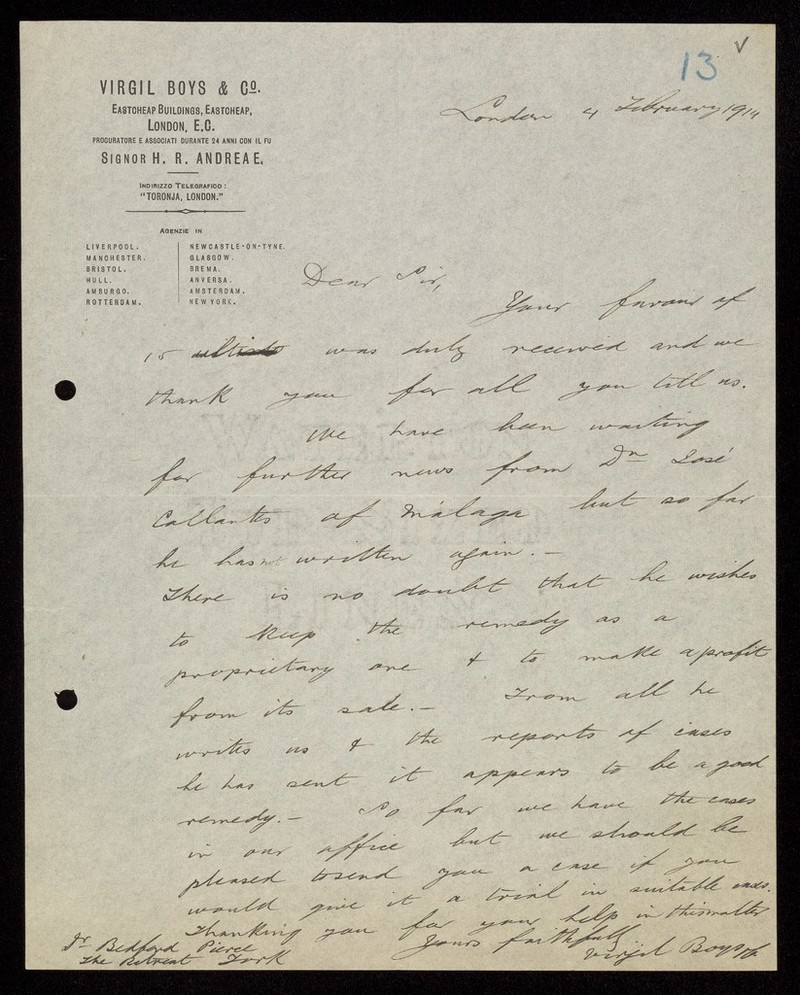 13
VIRGIL BOYS & Co.
EASTCHEAP BUILDINGS, EASTCHEAP,
LONDON, E.C.
PROCURATORE E ASSOCIATI DURANTE 24 ANNI CON IL FU
SIGNOR H. R. ANDREAE.
INDIRIZZO TELEGRAFICO:
"TORONJA, LONDON."
AGENZIE IN
LIVERPOOL. NEWCASTLE-ON-TYNE.
MANCHESTER. GLASGOW.
BRISTOL. BREMA.
HULL. ANVERSA.
AMBURGO. AMSTERDAM.
ROTTERDAM. NEW YORK.
London 4 February 1914
Dear Sir,
Your favour of
15 was duly received and we
thank you for all you tell us.
We have been waiting
for further news from Dn José
Collantes of Málaga but so far
he has not written again. —
There is no doubt that he wishes
to keep the remedy as a
proprietary one & to make a profit
from its sale. — From all he
writes us & the reports of cases
he has sent it appears to be a good
remedy. — So far we have the cases
in our office but we should be
pleased to send you a case if you
would give it a trial in suitable cases.
Thanking you for your help in this matter
Yours faithfully
Virgil Boys & Co
Dr Bedford Pierce
The Retreat York